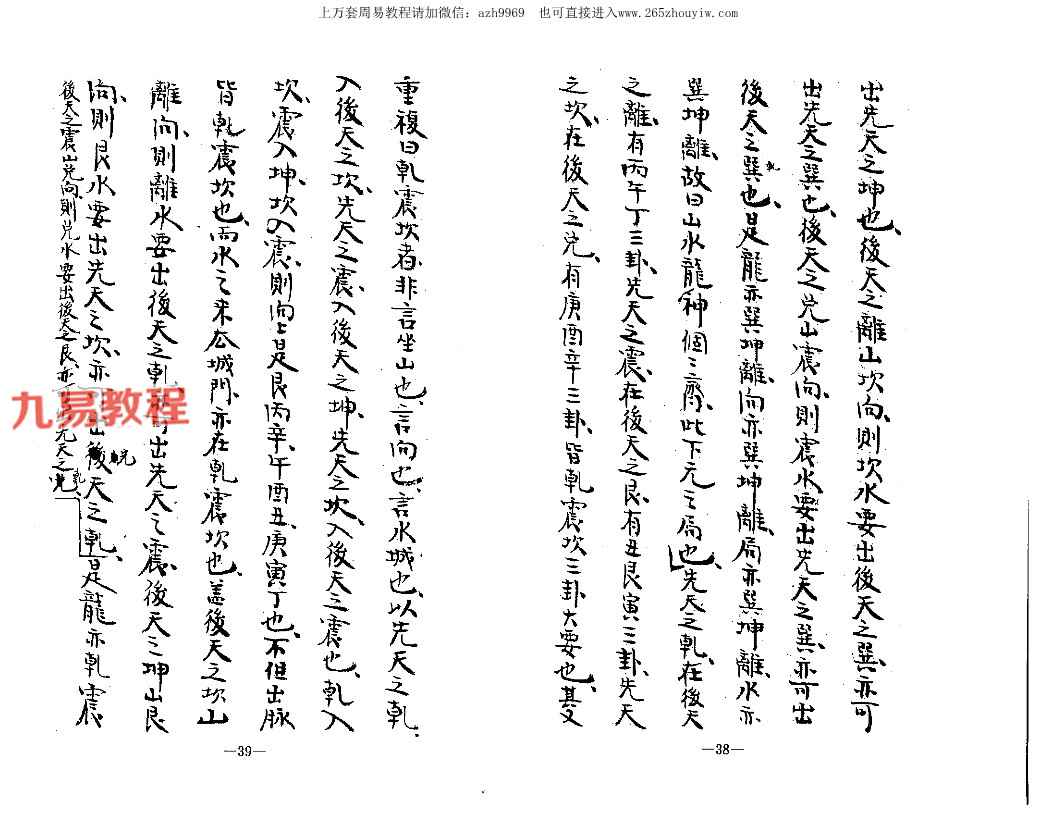 上万套周易教程请加微信：azh9969 也可直接进入www.265zhouyiw.com
出先天之坤也、後天之離山坎向、則坎水要出後天之巽、亦可
出先天之巽也、後天之兑山震向、則震水要出先天之巽、亦可出
後天之巽也、是龍亦巽坤離、向亦巽坤離、局亦巽坤離、水亦
巽坤離、故曰山水龍神個三齊、此下元之局也、先天之乹、在後天
之離、有丙午丁三卦、先天之震、在後天之艮、有丑艮寅三卦、先天
之坎、在後天之兑、有庚酉辛三卦、皆乹震坎三卦大要也、其又
—38—
重複曰乹震坎者、非言坐山也、言向也、言水城也、以先天之乹、
入後天之坎、先天之震、入後天之坤、先天之坎、入後天之震也、乹入
坎、震入坤、坎入震、則向上是艮丙辛、午酉丑、庚寅丁也、不但出脉
皆乹震坎也、而水之来公城門、亦在乹震坎也、盖後天之坎山
離向、則離水要出後天之乹 出先天之震、後天之坤山艮
向、則艮水要出先天之坎、亦 後天之乹、是龍亦乹震
後天之震山兑向、則兑水要出後天之艮、亦 先天之
九易教程
—39—